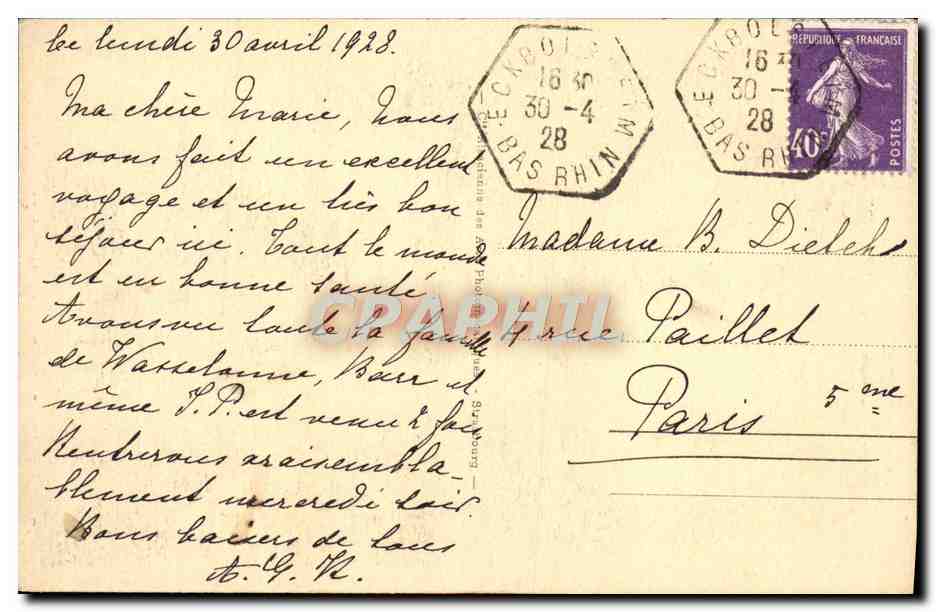 le lundi 30 avril 1928.
Ma chère Marie, Nous
avons fait un excellent
voyage et un très bon
séjour ici. Tout le monde
est en bonne santé
Avons vu toute la famille
de Wasselonne, Barr et
même J.P. est venu 2 fois
Rentrerons vraisembla-
blement mercredi soir.
Bons baisers de tous
A. G. K.
ECKBOLSHEIM
16 30
30 -4
28
BAS RHIN
ECKBOLSHEIM
16 30
30 -4
28
BAS RHIN
RÉPUBLIQUE FRANÇAISE
40c
POSTES
Madame B. Dietch
4 rue Paillet
Paris 5me
Strasbourg
CPAPHIL